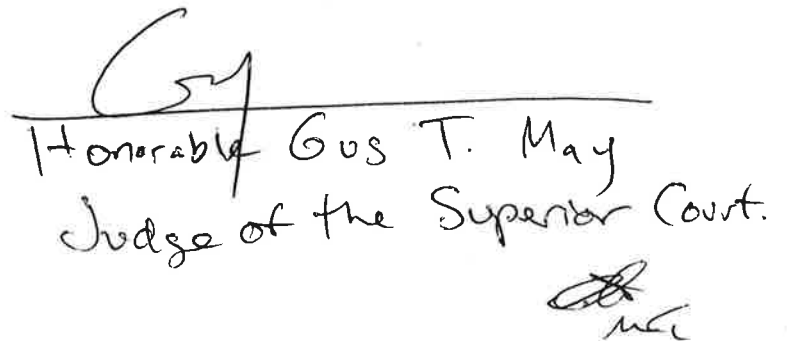 Honorable Gus T. May
Judge of the Superior Court.